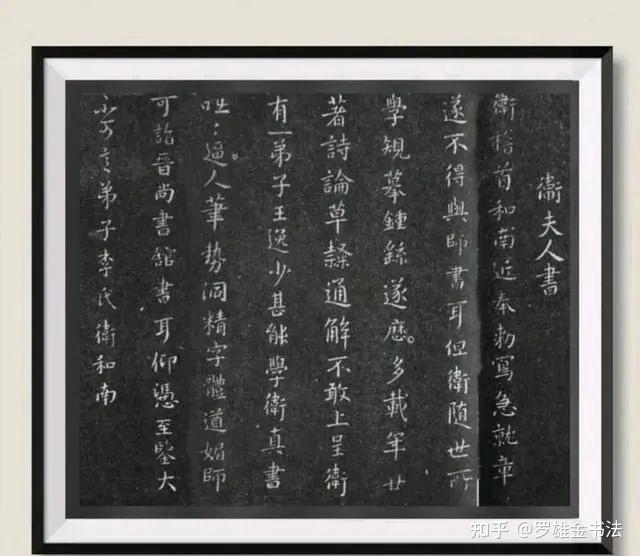 衞夫人書
衞稽首和南近奉勅寫急就章
遂不得與師書耳但衞随世所
學規摹鍾繇遂歷多載年廿
著詩論草隸通解不敢上呈衞
有一弟子王逸少甚能學衞真書
咄〻逼人筆勢洞精字體遒媚師
可詣晉尚書館書耳仰憑至鑒大
不可言弟子李氏衞和南
知乎 @罗雄金书法